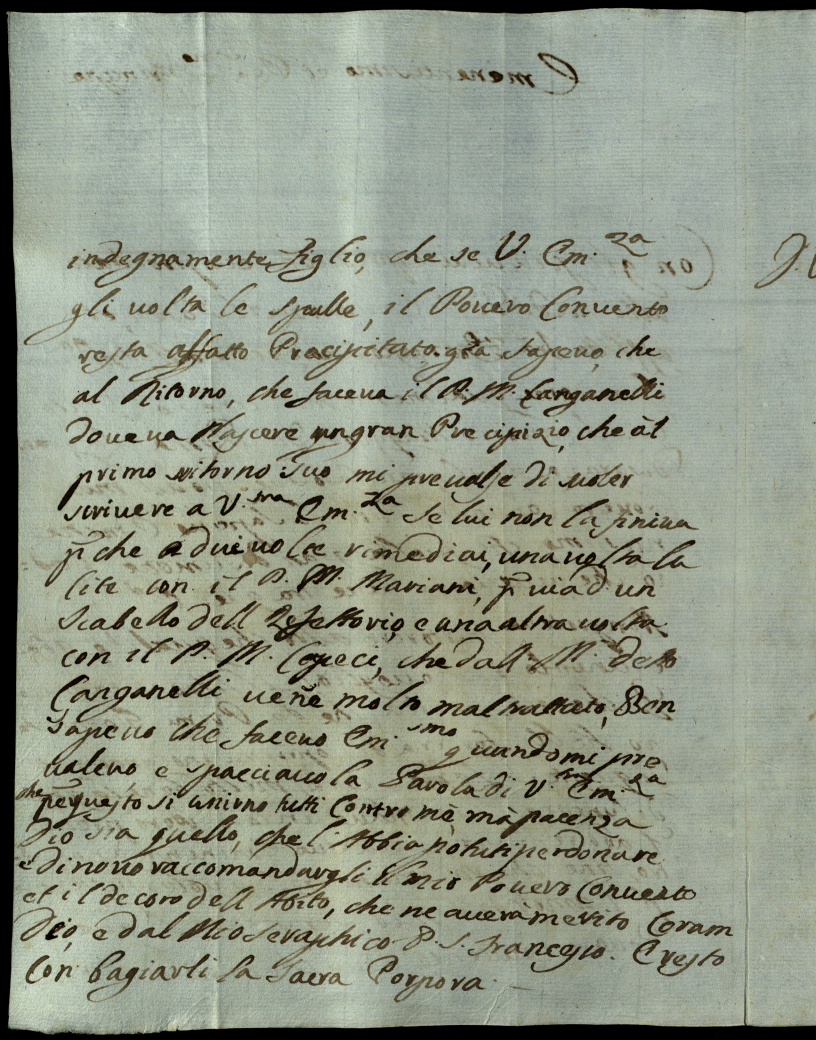 indegnamente figlio, che se V. Em.za
gli volta le spalle, il Povero Convento
resta affatto Precipitato. già sapevo, che
al Ritorno, che faceva il P. M. Langanelli
doveva Nascere un gran Precipizio, che al
primo ritorno suo mi prevalse di voler
scrivere a V.sra Em.za se lui non la finiva
p che a due volte rimediai, una volta la
lite con il P. M. Mariani, p via d un
scabello dell Refettorio, e una altra volta
con il P. M. Capeci, che dall M. detto
Langanelli veñe molto mal trattato, Ben
sapevo che facevo Em.smo quando mi pre
valevo e spacciavo la Parola di V.sra Em.za
che p questo si unirno tutti Contro mè mà pacenza
Dio sia quello, che l'Abbia perdonare
e di novo raccomandargli il mio Povero Convento
et il decoro dell Abito, che ne averà merito Coram
Deo, e dal Mio Seraphico P. S. Francesco. E resto
Con bagiarli la Sacra Porpora